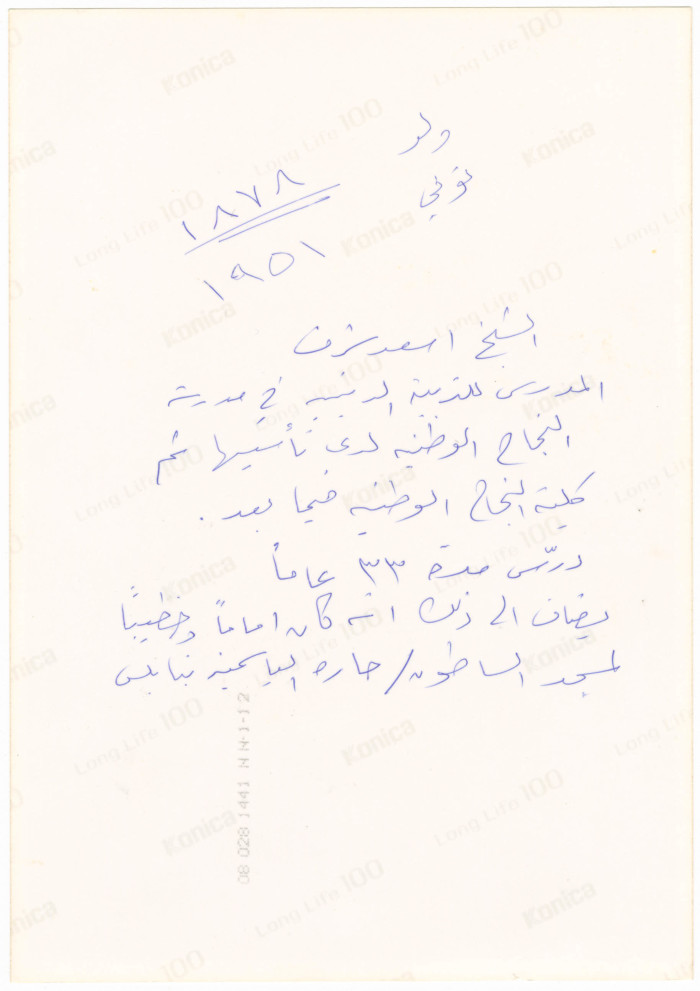 ولد
١٨٧٨
توفي
١٩٥١
الشيخ اسعد شرف
المدرس للتربية الدينية في مدرسة
النجاح الوطنية لدى تأسيسها ثم
كلية النجاح الوطنية فيما بعد .
درّس مدة ٣٣ عاماً
يضاف الى ذلك انه كان اماماً وخطيباً
لمسجد الساطون / حارة الياسمينة بنابلس
08 028 1441 N N-1-12
Konica
Long Life 100